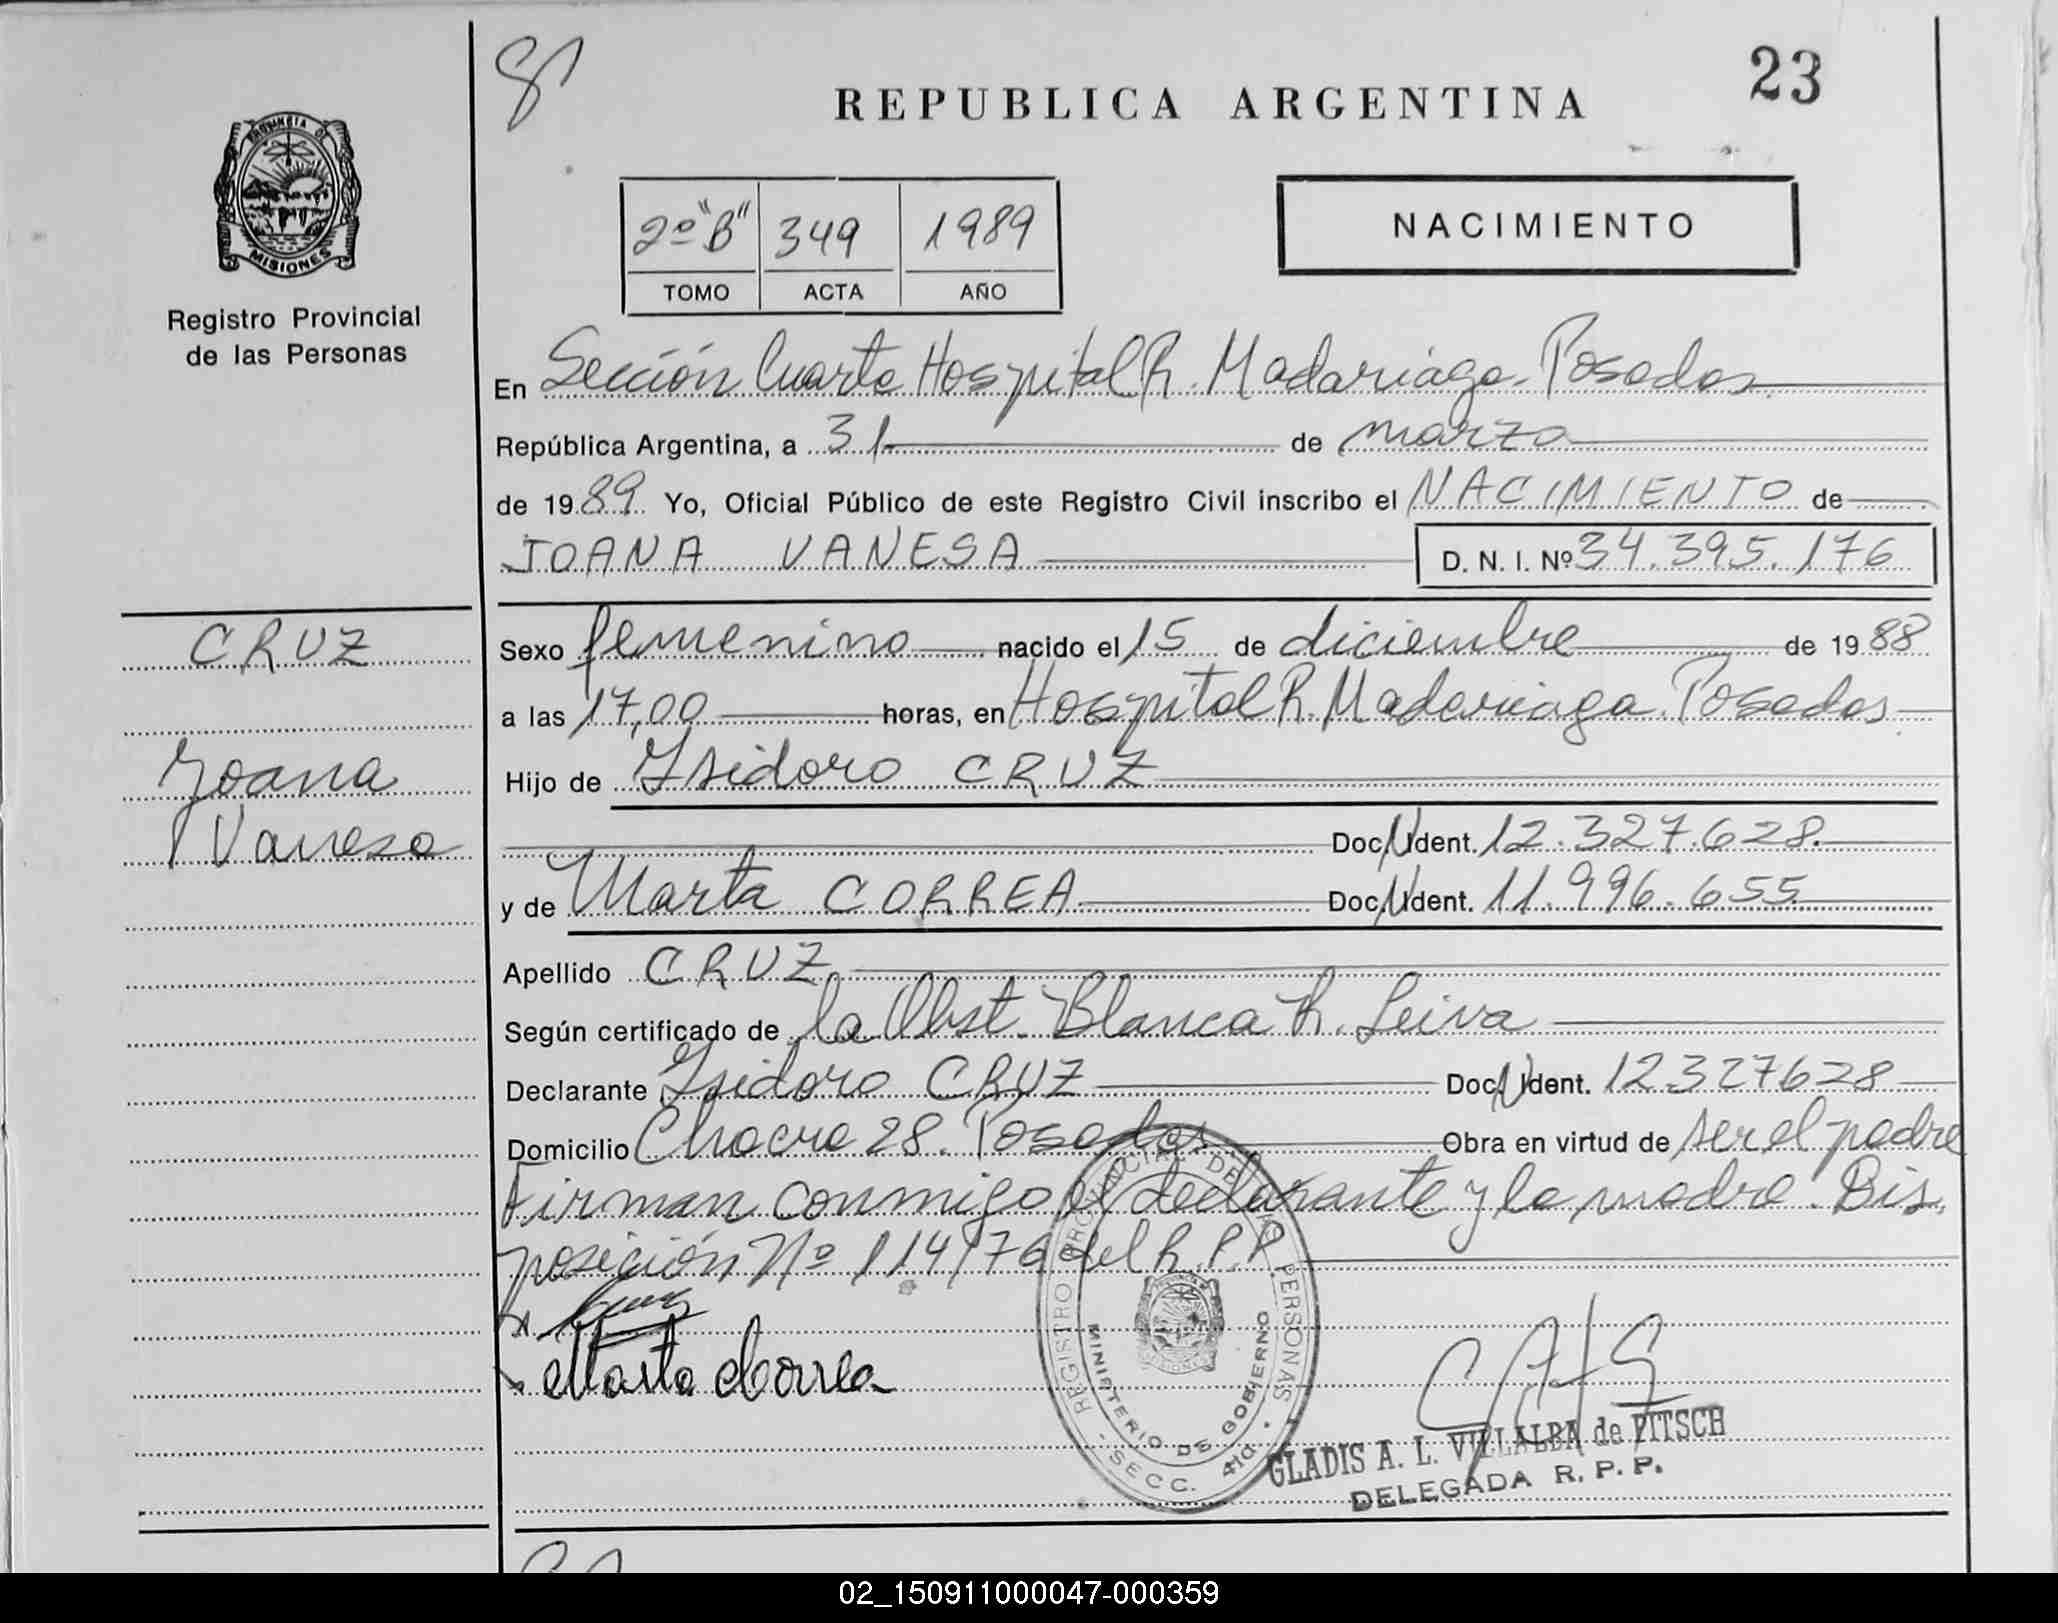 23
REPUBLICA ARGENTINA
PROVINCIA DE
MISIONES
Registro Provincial
de las Personas
2º "B" 349 1989
TOMO ACTA AÑO
NACIMIENTO
En Sección Cuarta Hospital R. Madariaga. Posadas
República Argentina, a 31 de marzo
de 1989 Yo, Oficial Público de este Registro Civil inscribo el NACIMIENTO de
JOANA VANESA D. N. I. Nº 34.395.176
CRUZ
Joana
Vanesa
Sexo femenino nacido el 15 de diciembre de 1988
a las 17,00 horas, en Hospital R. Madariaga. Posadas
Hijo de Isidoro CRUZ
Doc. Ident. 12.327.628.
y de Marta CORREA Doc. Ident. 11.996.655
Apellido CRUZ
Según certificado de la Obst. Blanca R. Leiva
Declarante Isidoro CRUZ Doc. Ident. 12327628
Domicilio Chacra 28. Posadas Obra en virtud de ser el padre
Firman conmigo el declarante y la madre. Dis-
posición Nº 114/76 del R.P.P.
Marta Correa
REGISTRO PROVINCIAL DE LAS PERSONAS
MINISTERIO DE GOBIERNO
- SECC. 4ta. -
GLADIS A. L. VILLALBA de PITSCH
DELEGADA R. P. P.
02_150911000047-000359